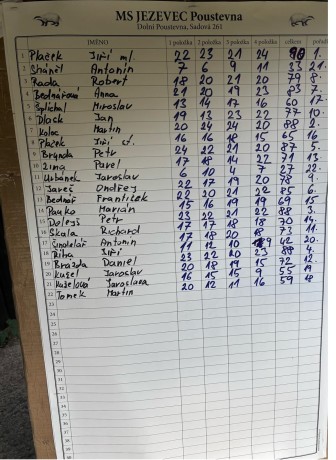 MS JEZEVEC Poustevna
Dolní Poustevna, Sadová 261
JMÉNO 1 položka 2 položka 3 položka 4 položka celkem
1 Plaček Jiří ml. 22 23 21 24 90 1.
2 Antonín 7 6 9 11 33 21.
3 Rada Robert 18 20 21 20 79 8.
4 Bednářová Anna 21 20 19 23 83 7.
5 Šplíchal Miroslav 13 14 17 16 60 17
6 Dlask Jan 19 13 23 22 77 10.
7 Martin 20 24 24 20 88 2.
8 Plaček Jiří st. 16 16 18 15 65 16
9 Brynda Petr 24 22 21 20 87 5.
10 Zima Pavel 17 18 14 22 71 13
11 Urbánek Jaroslav 6 10 4 7 27 22.
12 Jareš Ondřej 22 17 19 20 78 9.
13 Bednář František 22 20 21 22 85 6.
14 Marián 15 16 19 19 69 15
15 Dolejš Petr 23 22 21 22 88 3.
16 Skala Richard 17 17 18 18 70 14
17 Antonín 17 18 20 18 73 11.
18 Říha Jiří 11 12 10 9 42 20
19 Brázda Daniel 23 22 20 23 88 4.
20 Kušel Jaroslav 20 18 19 15 72 12
21 Kuželová Jaroslava 16 15 15 9 55 19
22 Tomek Martin 20 12 11 16 59 18